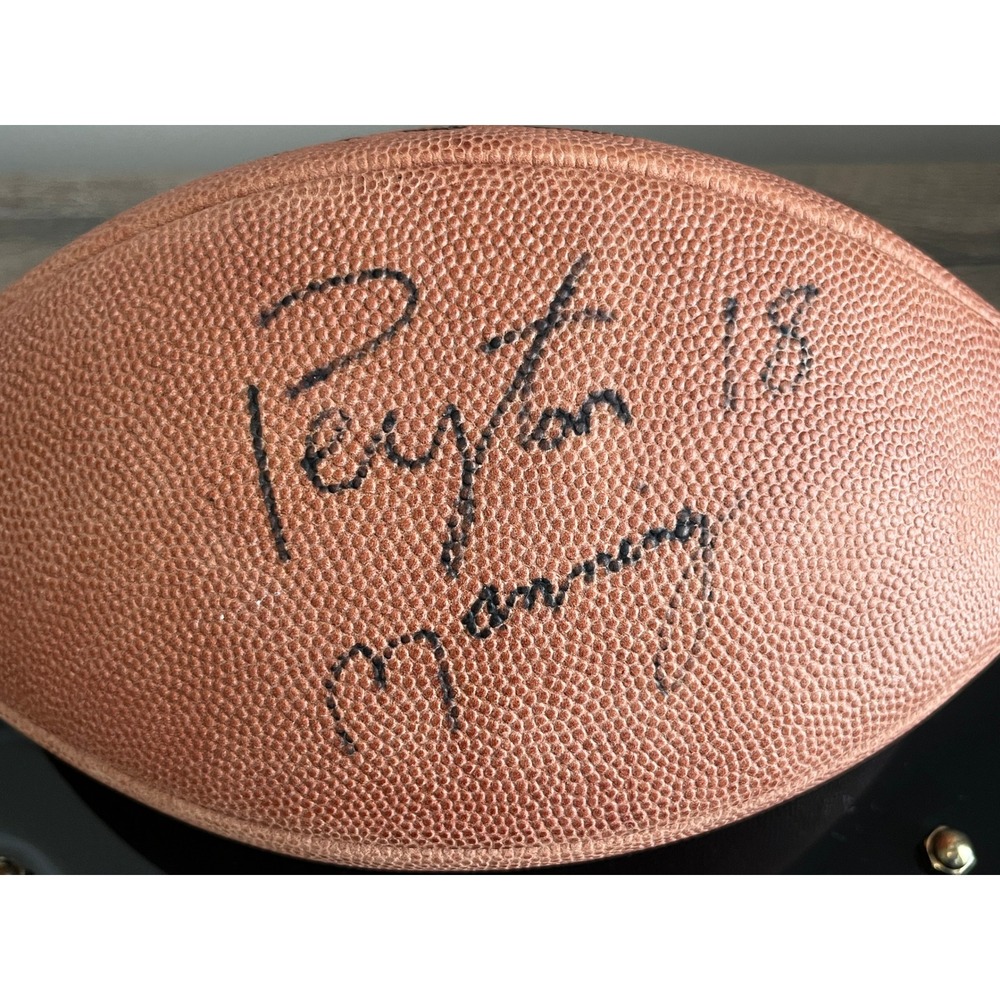 Peyton 18
Manning